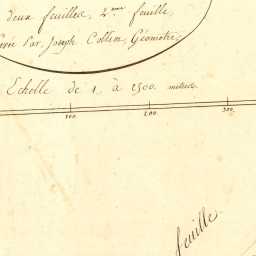 deux feuilles, 2.me feuille,
Par Joseph Collin, Géomètre,
Echelle de 1 à 2500 mètres
100. 200. 300.
feuille